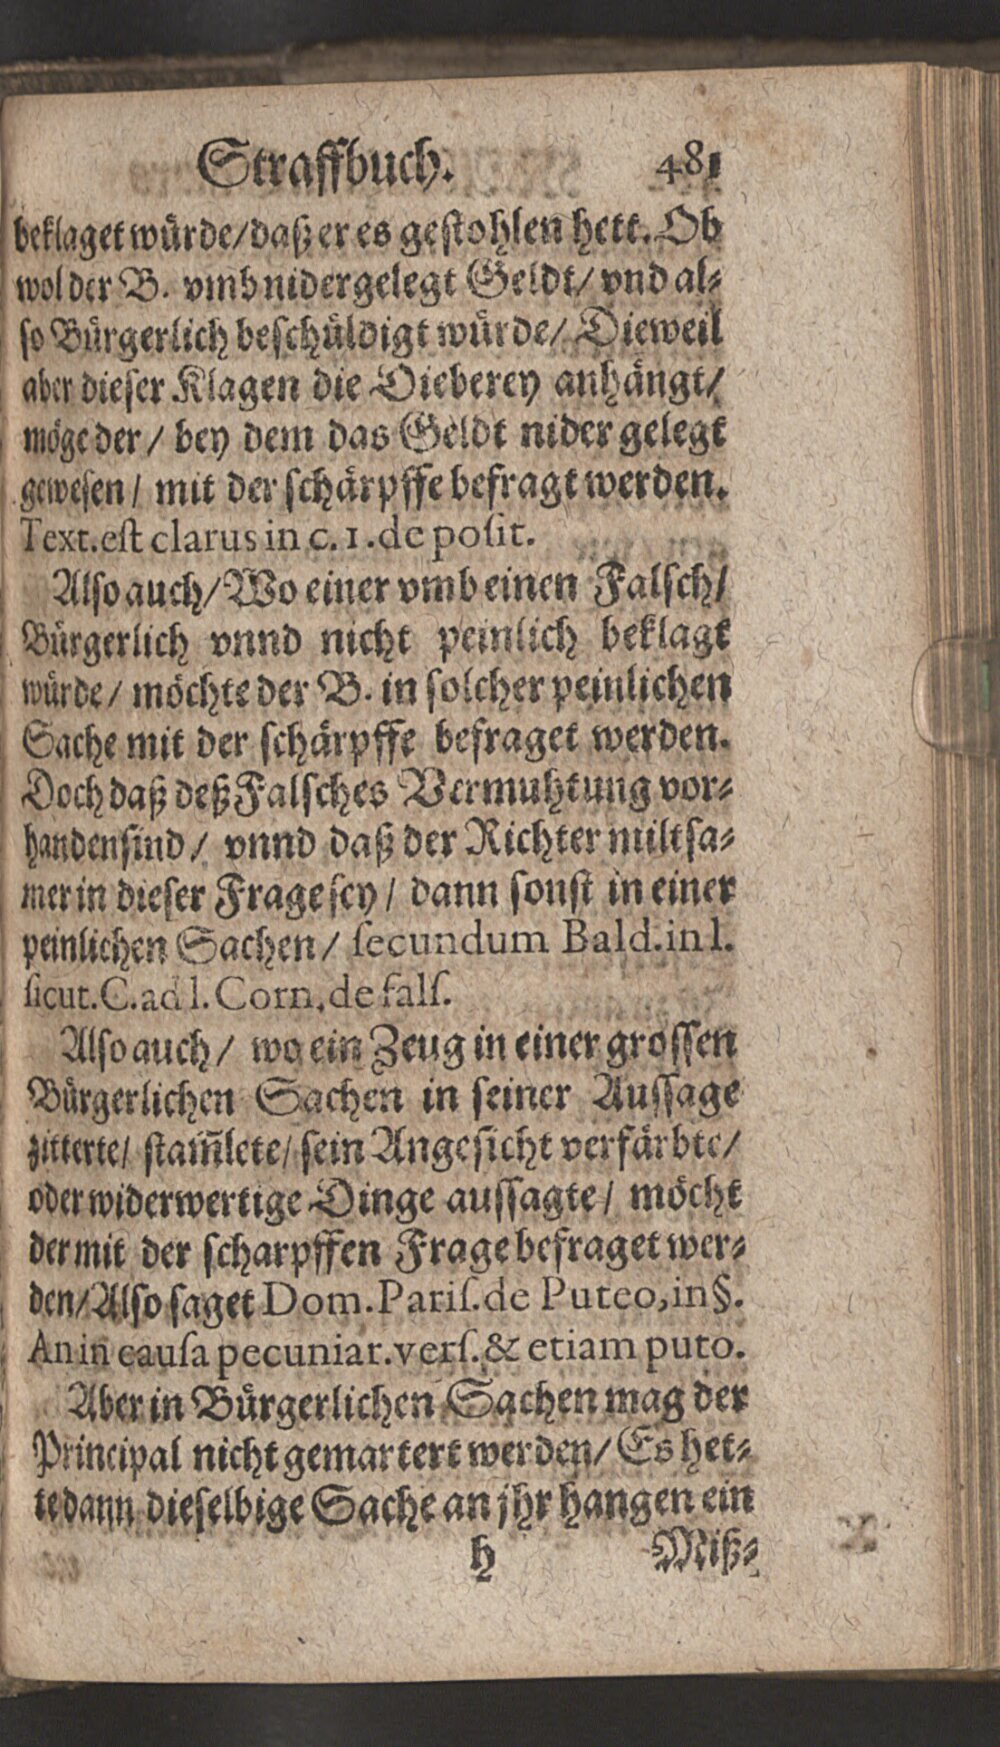 Straffbuch. 481
beklaget würde/daß er es gestohlen hett. Ob
wol der B. vmb nidergelegt Geldt/ vnd al-
so Bürgerlich beschüldigt würde/ Dieweil
aber dieser Klagen die Dieberey anhängt/
möge der/ bey dem das Geldt nider gelegt
gewesen/ mit der schärpffe befragt werden.
Text. est clarus in c. 1. de posit.
Also auch/ Wo einer vmb einen Falsch/
Bürgerlich vnnd nicht peinlich beklagt
würde/ möchte der B. in solcher peinlichen
Sache mit der schärpffe befraget werden.
Doch daß deß Falsches Vermuhtung vor-
handen sind/ vnnd daß der Richter miltsa-
mer in dieser Frage sey/ dann sonst in einer
peinlichen Sachen/ ſecundum Bald. in l.
ſicut. C. ad l. Corn. de falſ.
Also auch/ wo ein Zeug in einer grossen
Bürgerlichen Sachen in seiner Aussage
zitterte/ stam̃lete/ sein Angesicht verfärbte/
oder widerwertige Dinge aussagte/ möcht
der mit der scharpffen Frage befraget wer-
den/ Also saget Dom. Pariſ. de Puteo, in §.
An in cauſa pecuniar. verſ. & etiam puto.
Aber in Bürgerlichen Sachen mag der
Principal nicht gemartert werden/ Es het-
te dann dieselbige Sache an jhr hangen ein
h Miß-